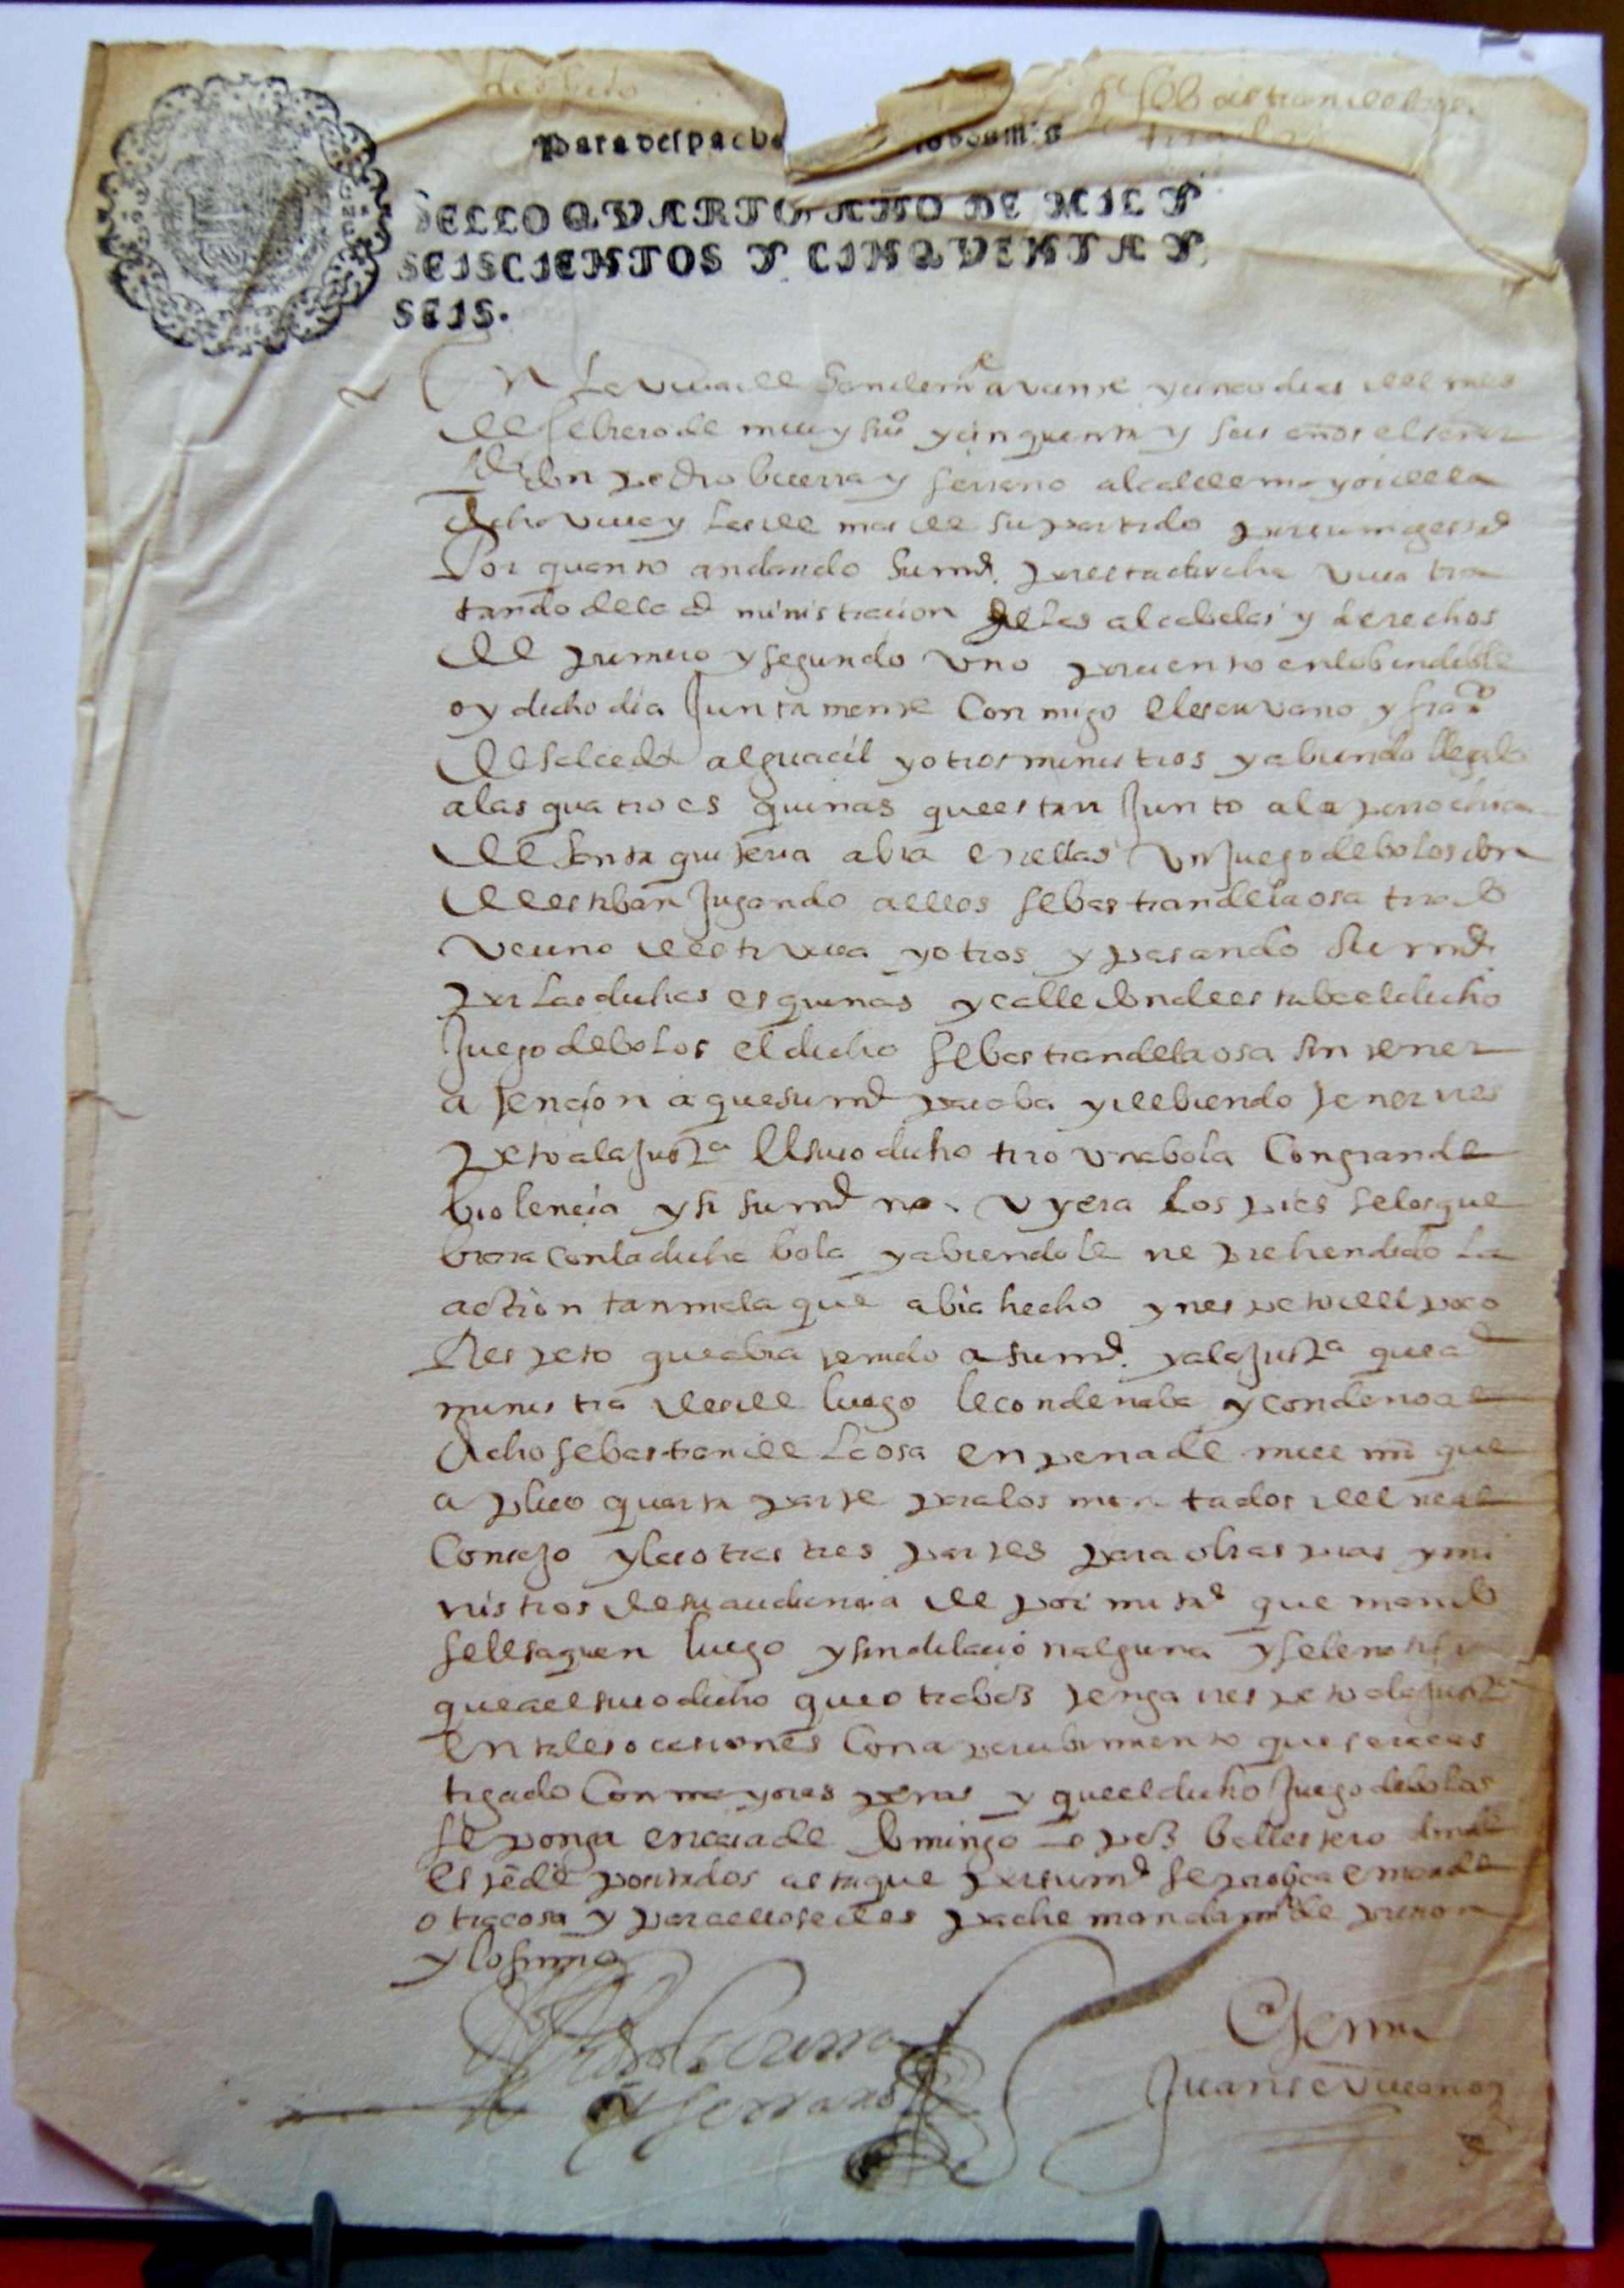 Para despacho
SELLO QVARTO, AÑO DE MIL Y
SEISCIENTOS Y CINQVENTA Y
SEIS.
En la villa de San clemte a veinte y cinco dias del mes
de febrero de mill y sºs y cinquenta y seis años el señor
Ldo don pedro Guerra y serrano alcalde mayor de la
dicha villa y las demas de su partido por su magestd
Por quanto andando su md. por esta dicha villa tra
tando de la administracion de las alcabalas y derechos
de primero y segundo uno por ciento en lo bendible
oy dicho dia Junta mente Con migo el escrivano y franco
de salcedo alguacil y otros ministros y abiendo llegado
a las quatro es quinas que estan Junto a la parrochia
de Santa quiteria abia en ellas Un Juego de bolos don
de estaban Jugando a ellos sebastian de la osa tirado
vecino desta villa y otros y pasando su md.
por las dichas esquinas y calle donde estaba el dicho
Juego de bolos el dicho sebastian de la osa sin tener
atencion a que su md pasaba y debiendo tener res
peto a la Justa el suso dicho tiro una bola Con grande
biolencia y si su md no uyera los pies se los que
brara con la dicha bola y abiendole re prehendido la
action tan mala que abia hecho y respeto del poco
Respeto que abia tenido a su md. y a la Justa que ad
ministra desde luego le condenaba y condeno al
dicho sebastian de la osa en pena de mill mrs que
aplico quarta parte para los mon tados del real
Consejo y las otras tres partes para obras pias y mi
nistros de su audiencia de por mitad que mando
se le saquen luego y sin dilacion alguna y se le notifi
que a el suso dicho que otra bez tenga respeto a la Justa
en tales ocasiones Con apercibimiento que sera cas
tigado Con mayores penas y que el dicho Juego de bolos
se ponga en casa de domingo lopez ballestero donde
esté de positados asta que por su md se probea e mande
otra cosa y para ello se des pache mandamto de prision
y lo firmo
Ldo Pedro Guerra
y serrano
Ante mi
Juan se Villanog